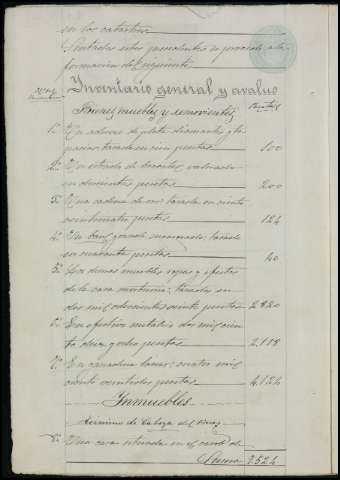 en los catastros
Sentados estos precedentes se procede a la
formacion del siguiente
Inventario general y avaluo
Bienes muebles y semovientes
Pesetas
1.º Un aderezo de plata diamantes y to-
pacios tasado en cien pesetas 100
2.º Un estrado de valorado
en doscientas pesetas 200
3.º Una cadena de oro tasada en ciento
veinticuatro pesetas 124
4.º Un baul grande tasado
en cuarenta pesetas 40
5.º Los demas muebles ropas y efectos
de la casa mortuoria; tasados en
dos mil ochocientas veinte pesetas 2.820
6.º En efectivo metalico dos mil cien-
to diez y ocho pesetas 2.118
7.º En lanar; cuatro mil
ciento veinticuatro pesetas 4.124
Inmuebles
Termino de Cabeza del
8.º Una casa situada en el de
Suma 9.524